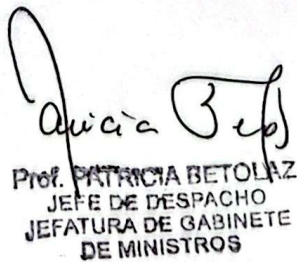 Prof. PATRICIA BETOLAZ
JEFE DE DESPACHO
JEFATURA DE GABINETE
DE MINISTROS